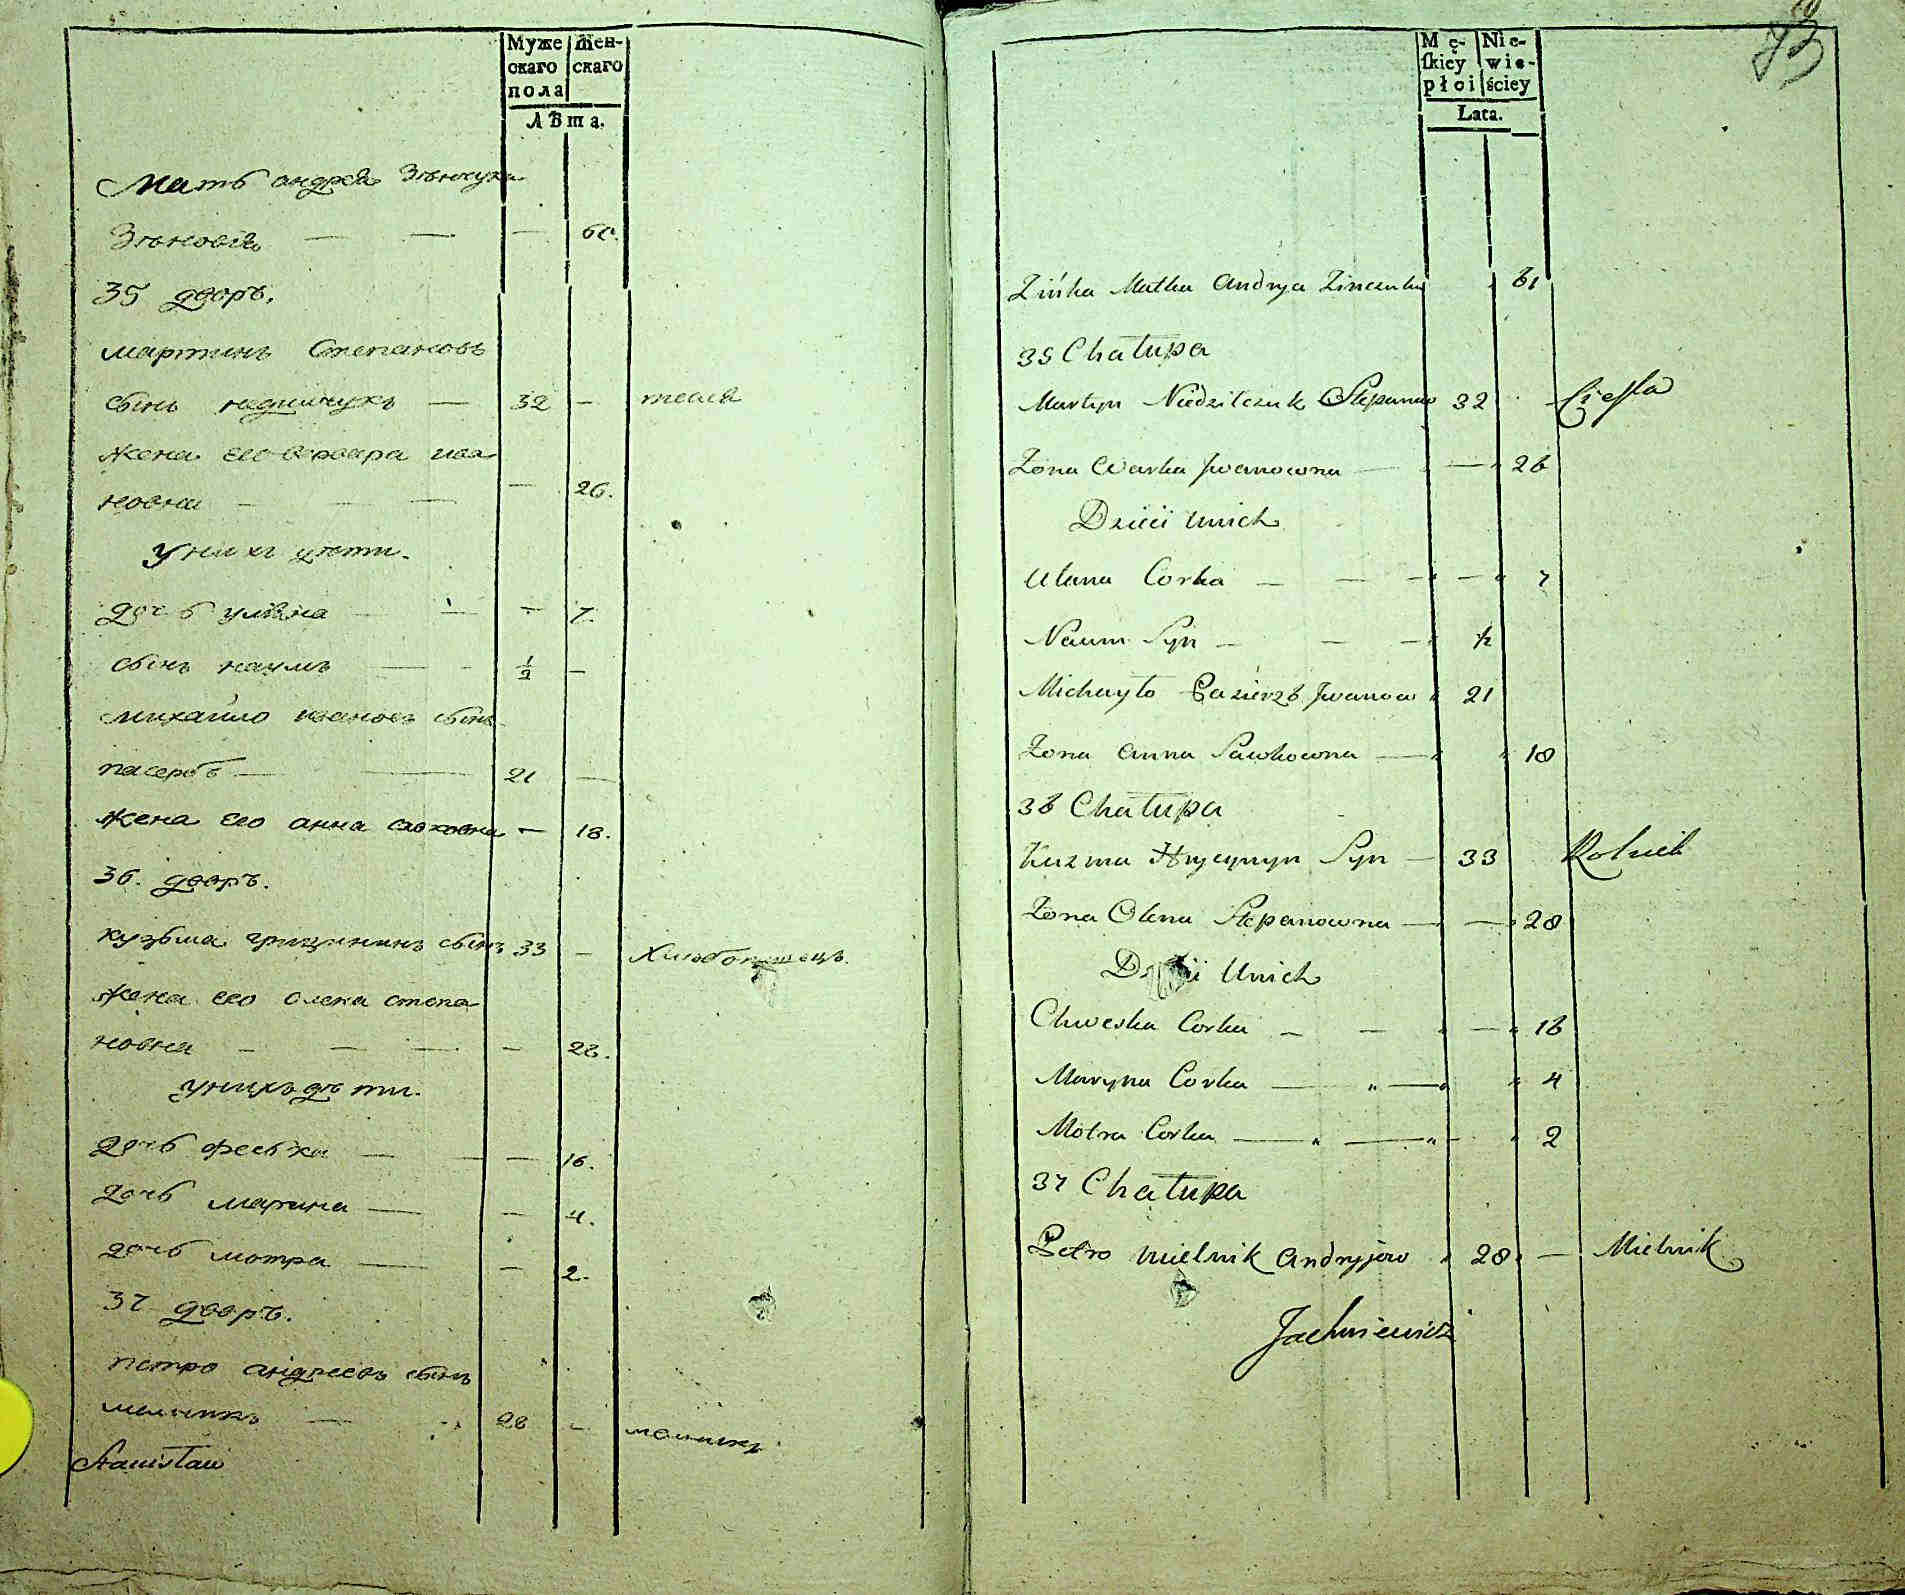 Муже
скаго
пола
Жен-
скаго
Лѣта.
Мать андрея Зѣнчука
Зѣновія — — — 60.
35 дворъ.
мартинъ Степановъ
сынъ недилчукъ — 32 — тесля
жена его варвара ива
новна — — — — 26.
у нихъ дѣти.
дочь уляна — — — 7.
сынъ наумъ — - 1/2 —
михайло ивановъ сынъ
пасербъ — — 21 —
жена его анна савковна — 18.
36. дворъ.
кузьма грицининъ сынъ 33 — Хлѣбопашецъ.
жена его олена степа
новна — — — — 28.
у нихъ дѣти.
дочь феська — — — 16.
дочь марина — — 4.
дочь мотра — — 2.
37 дворъ.
петро андреевъ сынъ
мельникъ — 28 - мельникъ
Stanisław
73
Mę-
ſkiey
płci
Nie-
wie-
ściey
Lata.
Zińka Matka Andryja Zinczuka 61
35 Chałupa
Martyn Niedzilczuk Stepanow 32 Cieſla
Żona Warka Jwanowna — — 26
Dzieci Unich
Ulana Corka — — — — 7
Naum Syn — — — 1/2
Michayło Pasierzb Jwanow 21
Żona Anna Sawkowna — 18
36 Chałupa
Kuzma Hrycynyn Syn — 33 Rolnik
Żona Olena Stepanowna — — 28
Dzieci Unich
Chweska Corka — — — 16
Maryna Corka — „ — „ „ 4
Motra Corka — „ — „ - „ 2
37 Chałupa
Petro Mielnik Andryjow 28 — Mielnik
Jachniewicz